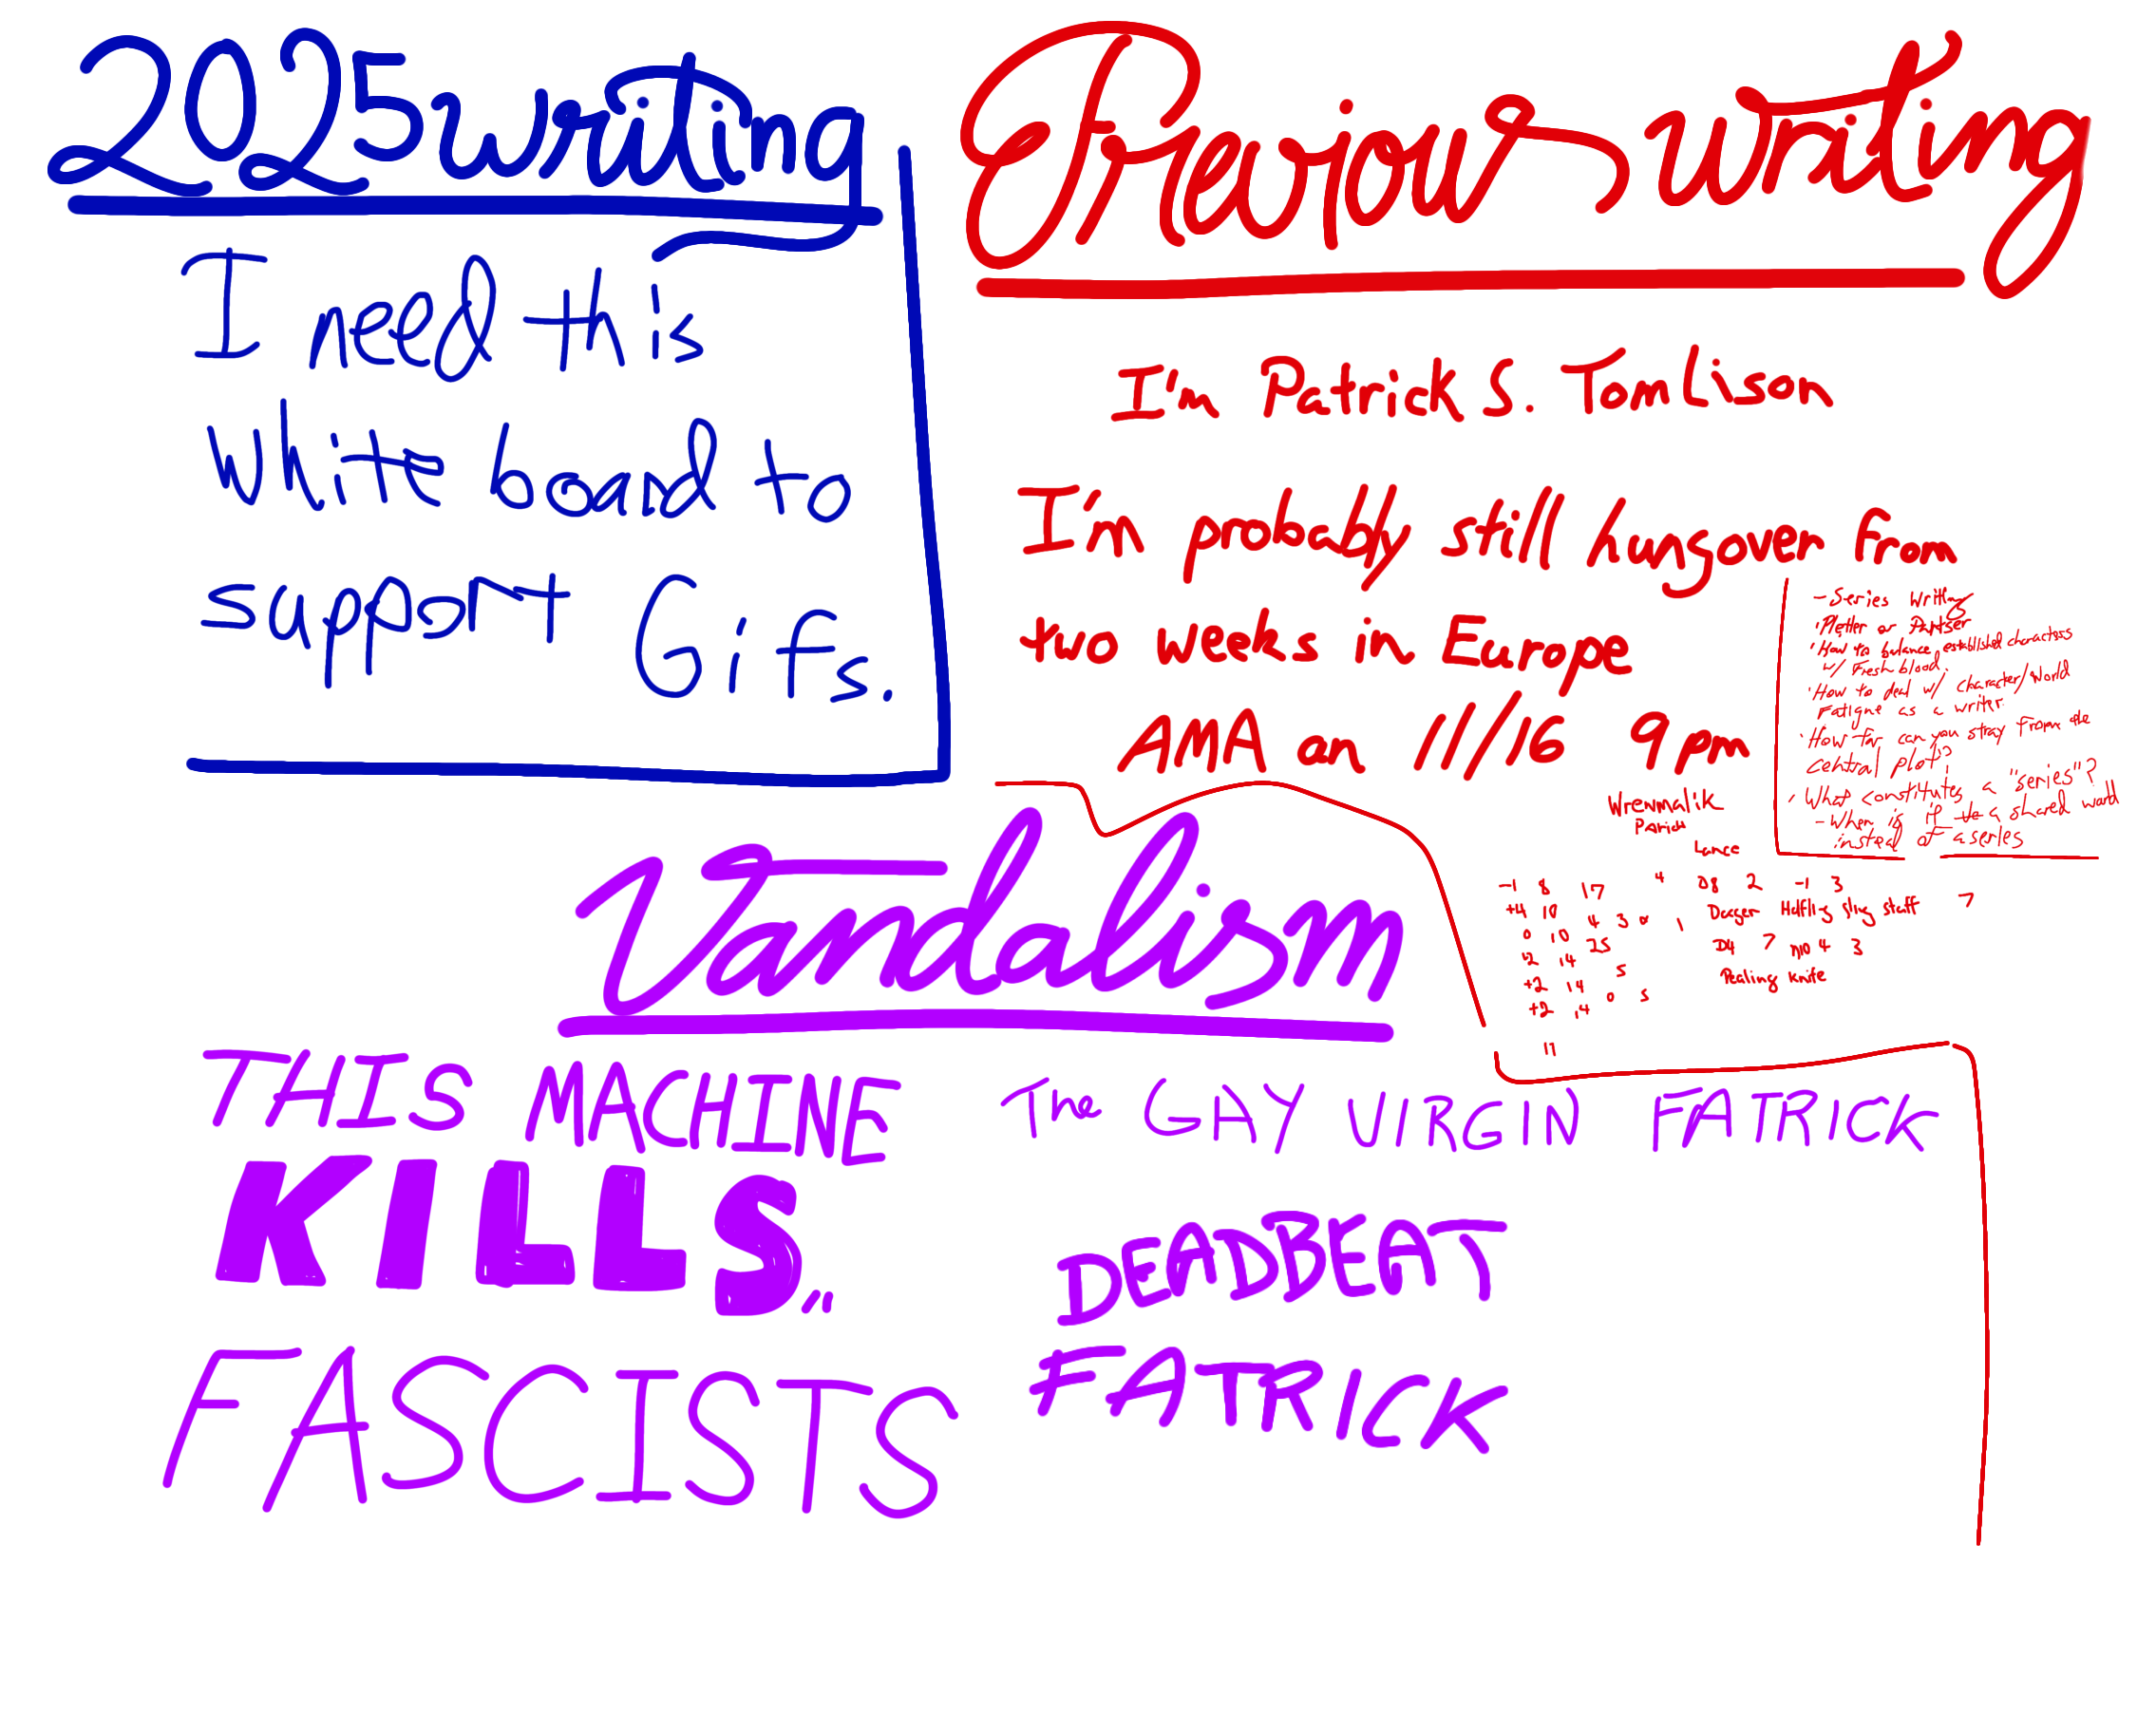 2025 writing
I need this
white board to
support Gifs.
Previous writing
I'm Patrick S. Tomlison
I'm probably still hungover from
two weeks in Europe
AMA on 11/16 9pm
- Series Writing
· Plotter or Pantser
· How to balance established characters
w/ Fresh blood.
· How to deal w/ character/world
Fatigue as a writer
· How far can you stray from the
central plot?
· What constitutes a "series"?
- When is it a shared world
instead of a series
Wrenmalik
Lance
-1 8 17 4 D8 2 -1 3
+4 10 4 3 1 Dagger Halfling sling staff 7
0 10 25 D4 7 4 3
14 5 Pealing knife
+2 14 0 5
+2 14
11
Vandalism
THIS MACHINE
KILLS
FASCISTS
The GAY VIRGIN FATRICK
DEADBEAT
FATRICK